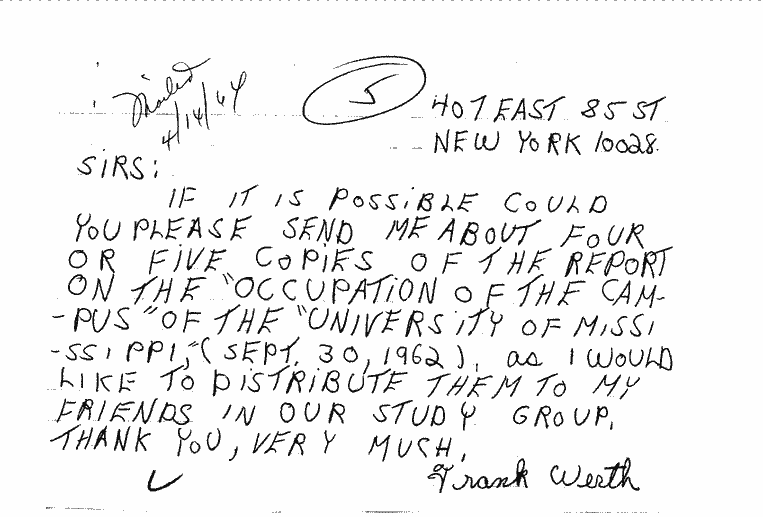 Mailed
4/14/64
5
407 EAST 85 ST
NEW YORK 10028.
SIRS:
IF IT IS POSSIBLE COULD
YOU PLEASE SEND ME ABOUT FOUR
OR FIVE COPIES OF THE REPORT
ON THE "OCCUPATION OF THE CAM-
-PUS" OF THE "UNIVERSITY OF MISSI
-SSIPPI," (SEPT. 30, 1962), as I WOULD
LIKE TO DISTRIBUTE THEM TO MY
FRIENDS IN OUR STUDY GROUP.
THANK YOU, VERY MUCH.
Frank Werth